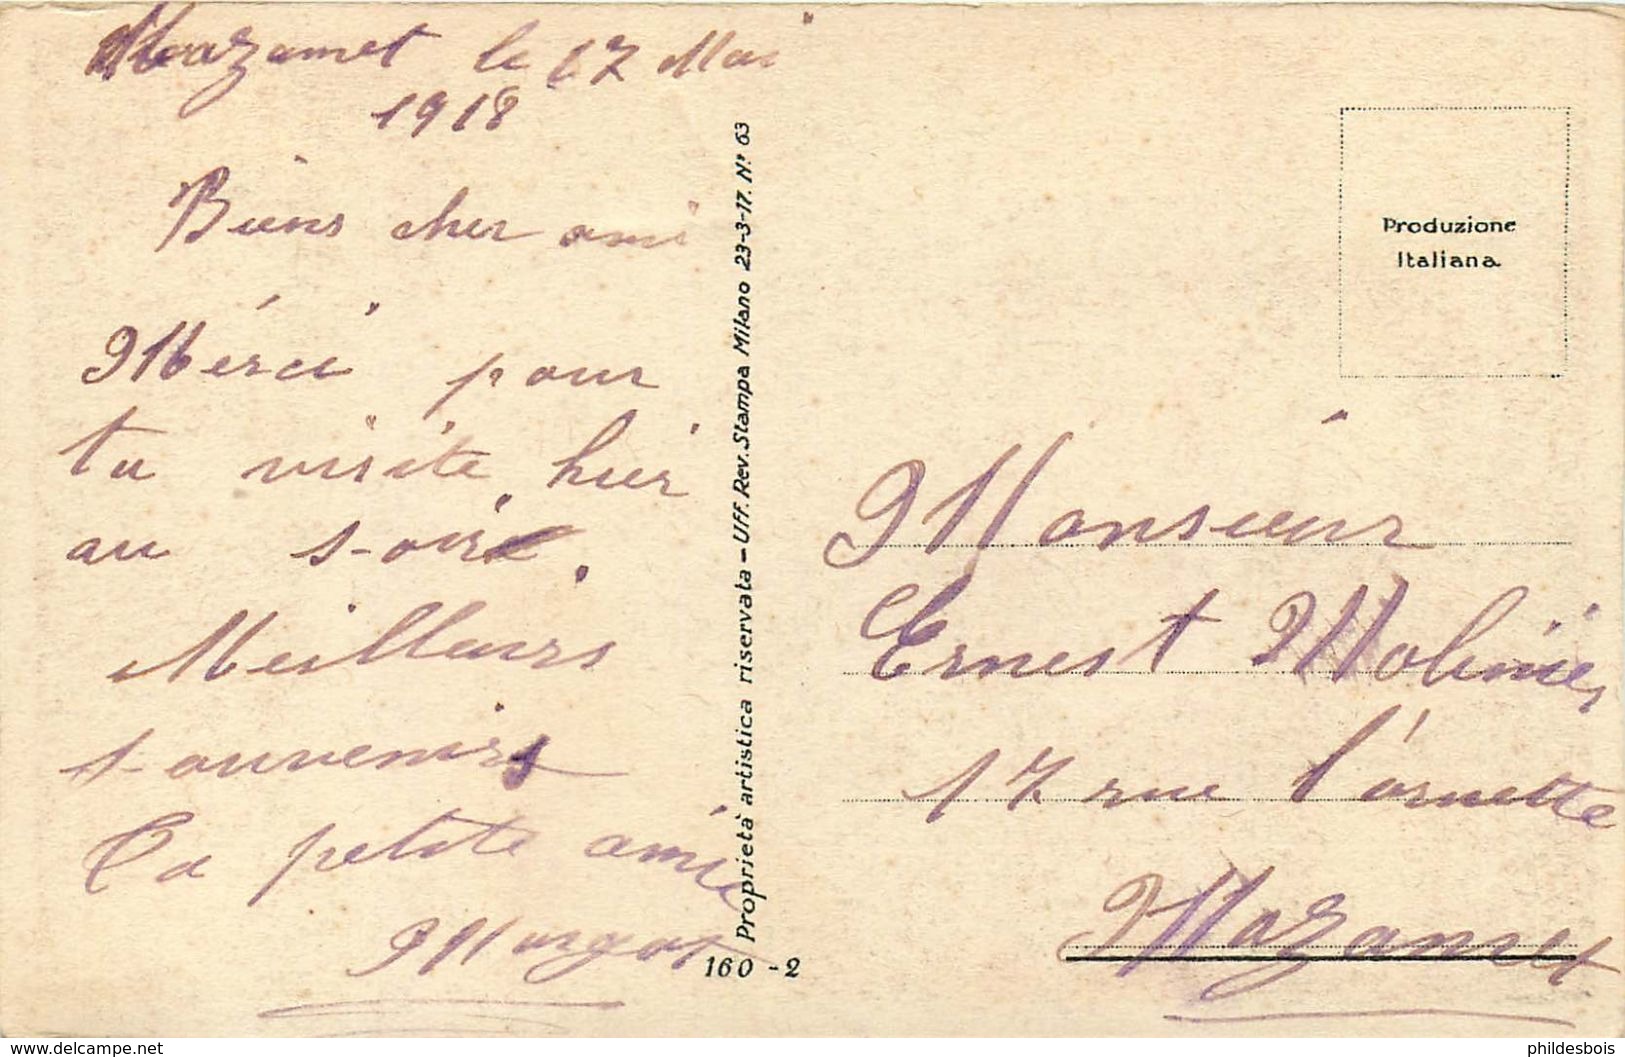 Mazamet le 17 Mai
1918
Biens cher ami
Mérci pour
tu visite, hier
au soir.
Meilleurs
souvenirs
Ta petite amie
Margot
Proprietà artistica riservata - Uff. Rev. Stampa Milano 23-3-17. N° 63
160 - 2
Produzione
Italiana
Monsieur
Ernest Molinier
17 rue l'arnette
Mazamet
delcampe.net
phildesbois